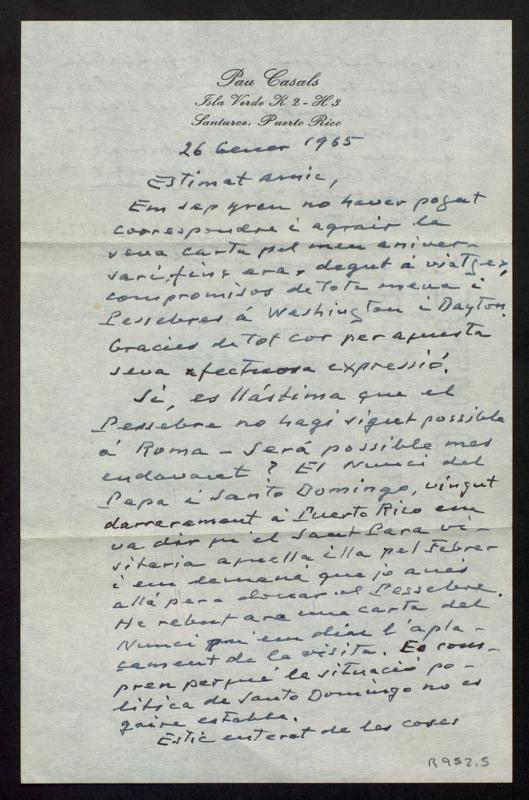 Pau Casals
Isla Verde K 2 - H 3
Santurce, Puerto Rico
26 Gener 1965
Estimat amic,
Em sap greu no haver pogut
correspondre i agrair la
seva carta pel meu aniver-
sari, fins ara, degut á viatges,
compromisos de tota mena i
Pessebres á Washington i Dayton.
Gracies de tot cor per aquesta
seva afectuosa expressió.
Sí, es llástima que el
Pessebre no hagi sigut possible
á Roma - Será possible mes
endavant? El Nunci del
Papa á Santo Domingo, vingut
darrerament á Puerto Rico em
va dir qu'el Sant Pare vi-
sitaria aquella illa pel Febrer
i em demaná que jo anés
allá per a donar el Pessebre.
He rebut ara una carta del
Nunci qu'em diu l'apla-
çament de la visita. Es com-
pren perqué la situació po-
litica de Santo Domingo no es
gaire estable.
Estic enterat de les coses
R 952,5